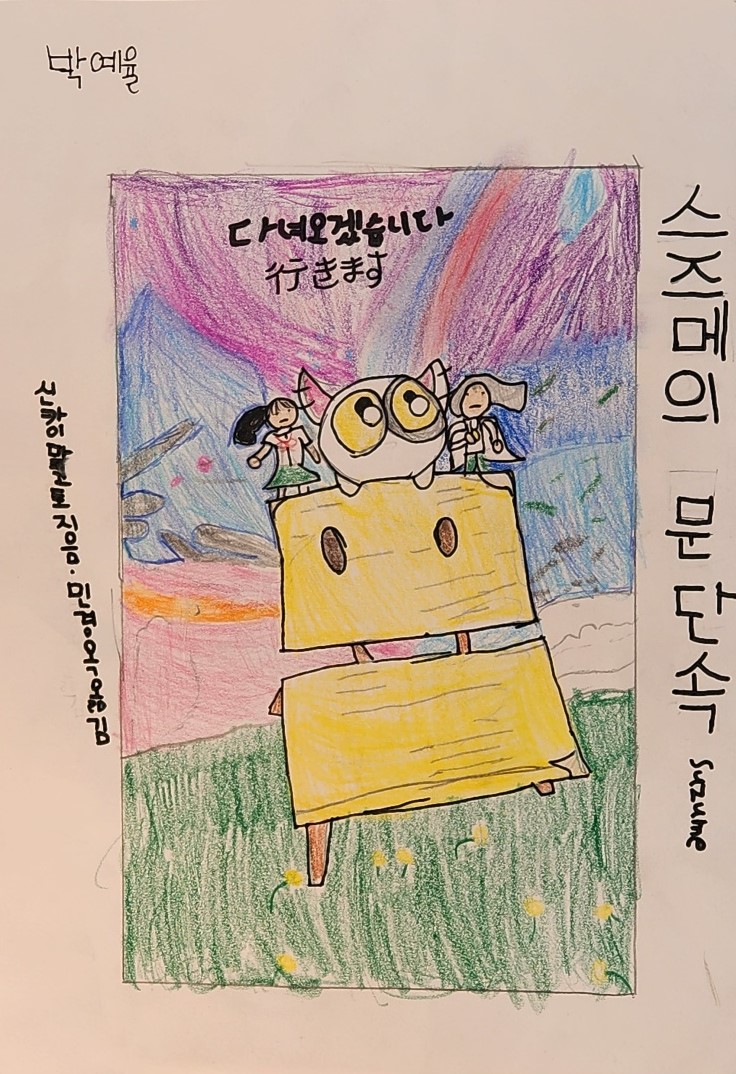 박예율
다녀오겠습니다
行きます
스즈메의 문단속 suzume
신카이 마코토 지음·민경욱 옮김